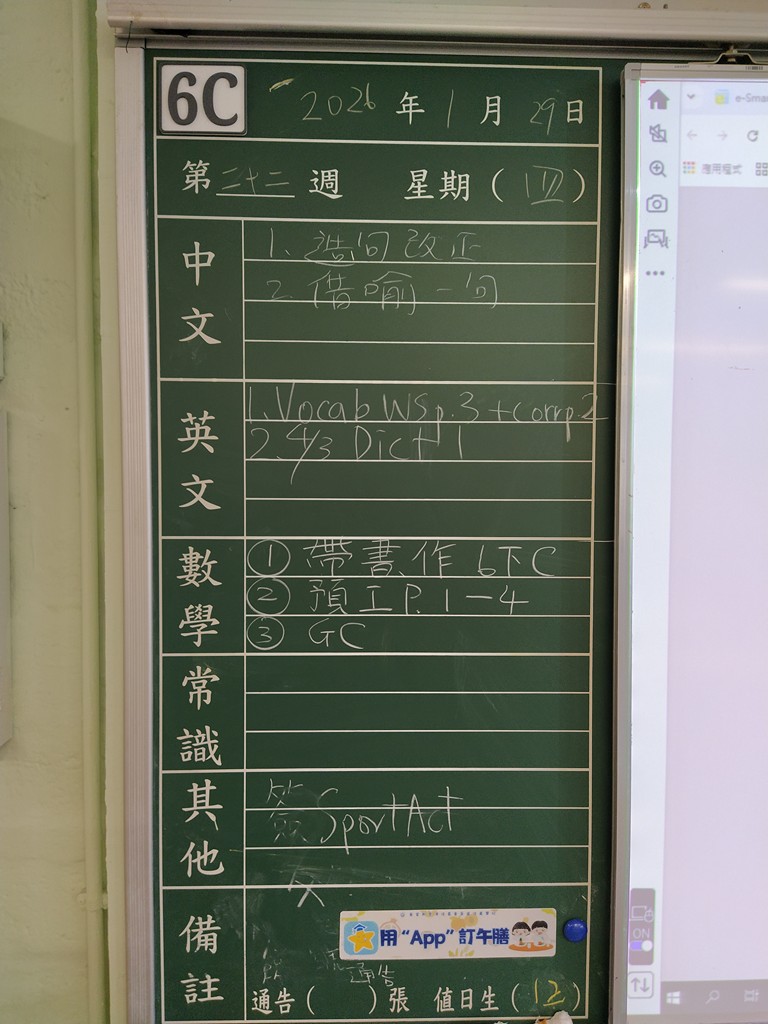 6C 2026年1月29日
第二十二週 星期(四)
中文
1. 造句改正
2. 借喻一句
英文
1. Vocab WS p.3 + corr p.2
2. 4/3 Dict 1
數學
① 帶書作6下C
② 預工P.1-4
③ GC
常識
其他
簽 Sport Act
備註
用“App”訂午膳
通告
通告( )張 值日生(12)
e-Smar
應用程式
ON